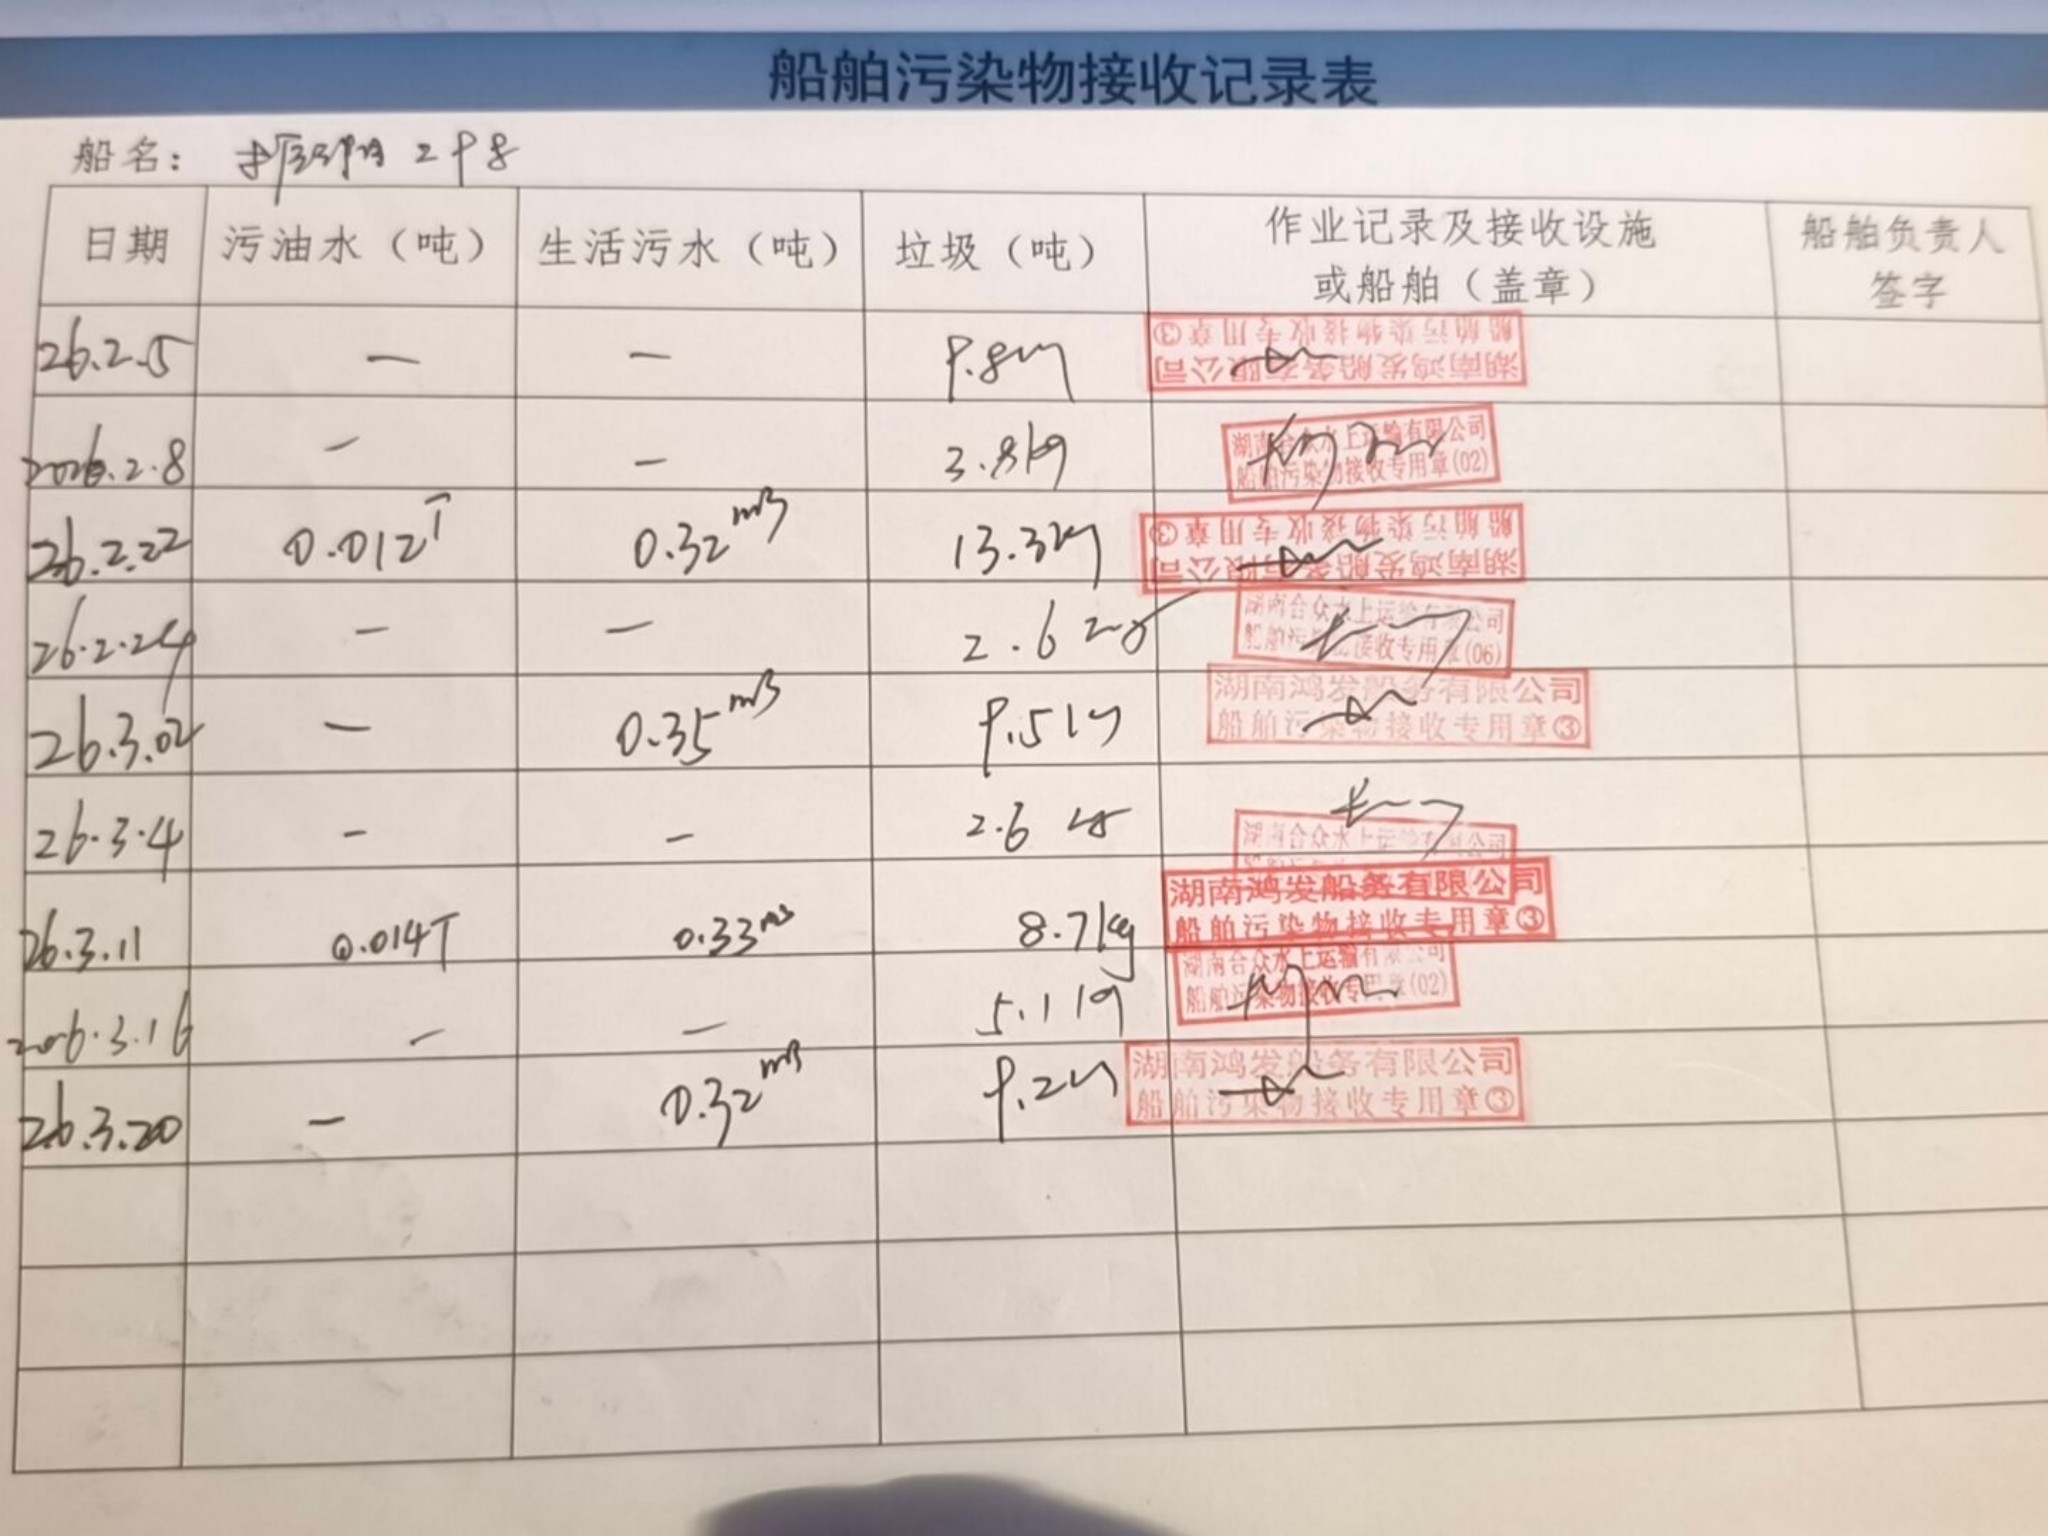 船舶污染物接收记录表
船名：
日期 污油水（吨） 生活污水（吨） 垃圾（吨） 作业记录及接收设施或船舶（盖章） 船舶负责人签字
26.2.5 — — 9.8kg 湖南鸿发船务有限公司 船舶污染物接收专用章③
2026.2.8 — — 3.8kg 湖南合众水上运输有限公司 船舶污染物接收专用章(02)
26.2.22 0.012T 0.32m3 13.3kg 湖南鸿发船务有限公司 船舶污染物接收专用章③
26.2.24 — — 2.6kg 湖南合众水上运输有限公司 船舶污染物接收专用章(06)
26.3.02 — 0.35m3 9.5kg 湖南鸿发船务有限公司 船舶污染物接收专用章③
26.3.4 — — 2.6kg 湖南合众水上运输有限公司
26.3.11 0.014T 0.33m3 8.7kg 湖南鸿发船务有限公司 船舶污染物接收专用章③
2026.3.16 — — 5.1kg 湖南合众水上运输有限公司 船舶污染物接收专用章(02)
26.3.20 — 0.32m3 9.2kg 湖南鸿发船务有限公司 船舶污染物接收专用章③